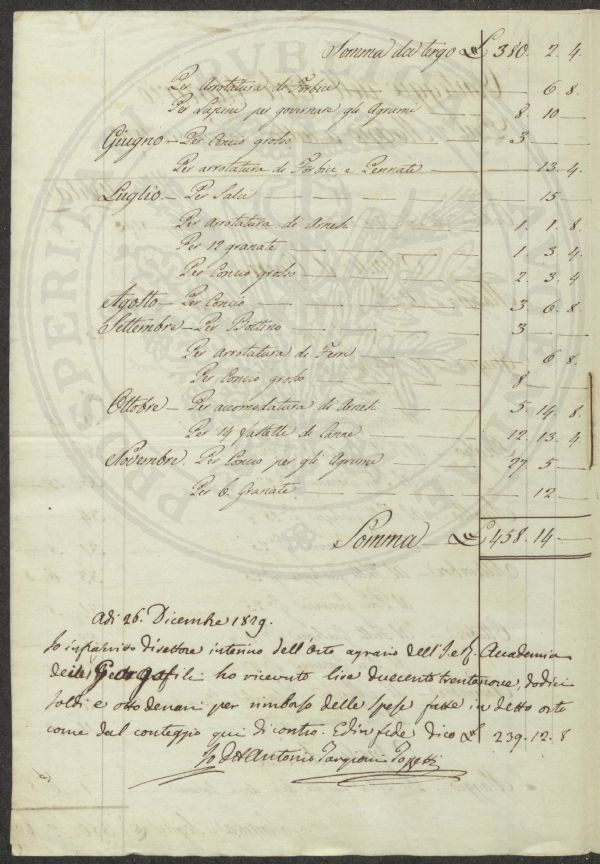 Somma da tergo £ 380. 2. 4
Per Arrotatura di Forbice — 6. 8.
Per Lupini per governare gli Agrumi — 8. 10 —
Giugno — Per Concio grosso — 3 —
Per arrotatura di Forbice e Pennate — 13. 4.
Luglio — Per Salci — 15 —
Per Arrotatura di Arnesi — 1. 1. 8.
Per 12 granate — 1. 3. 4
Per Concio grosso — 2. 3. 4
Agosto — Per Concio — 3. 6. 8
Settembre — Per Bottino — 3 —
Per Arrotatura di Ferri — 6. 8.
Per Concio grosso — 8 —
Ottobre — Per acomodatura di Arnesi — 5. 14. 8
Per 14 fastelli di Canne — 12. 13. 4
Novembre. Per Concio per gli Agrumi — 27. 5 —
Per 6. Granate — 12 —
Somma £ 458. 14 —
Adi 26. Dicembre 1829.
Io infrascritto Direttore interino dell'Orto agrario dell'I. e R. Accademia
delli Georgofili ho ricevuto lire duecento trentanove, dodici
soldi e otto denari per rimborso delle spese fatte in detto orto
come dal conteggio qui di contro. Ed in fede dico £ 239. 12. 8
Io Dr Antonio Targioni Tozzetti
PROSPERITATI PUBLICAE AUGENDAE